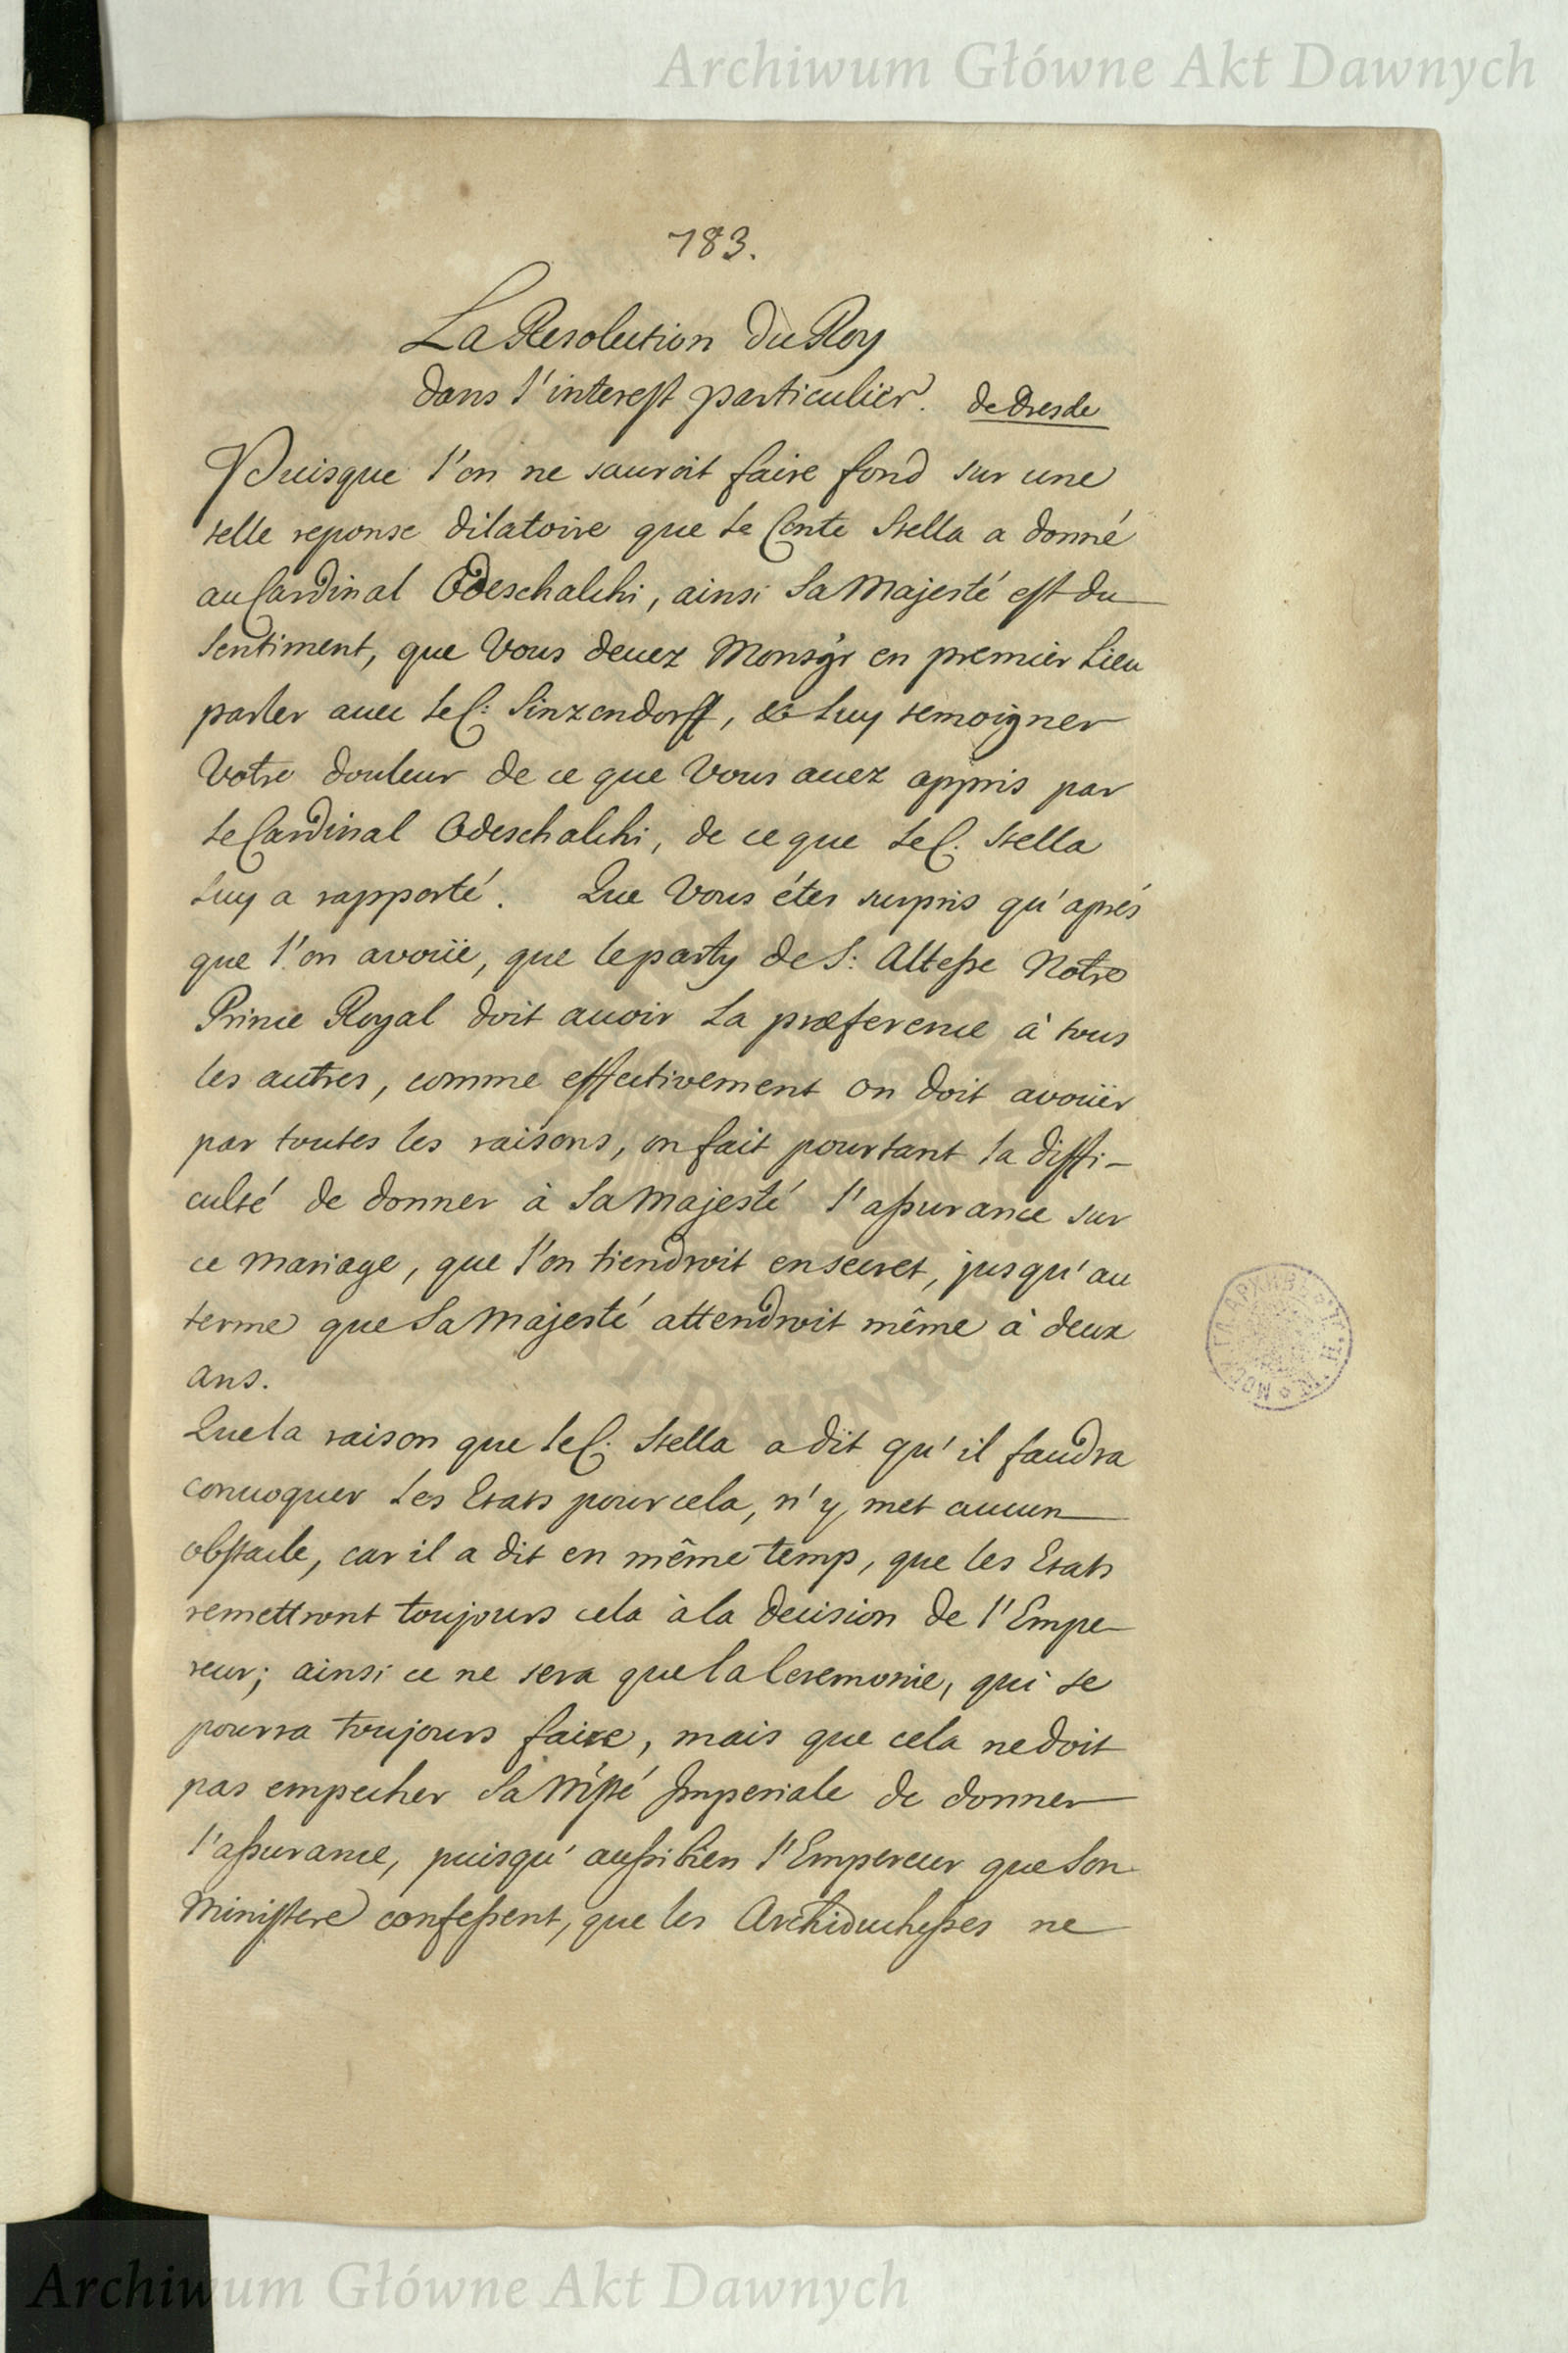 Archiwum Główne Akt Dawnych
183.
La Resolution du Roy
dans l'interest particulier. de Dresde
Puisque l'on ne sauroit faire fond sur une
telle reponse dilatoire que le Conte Stella a donné
au Cardinal Odeschalchi, ainsi Sa Majesté est du
sentiment, que Vous devez Monsgr en premier lieu
parler avec le C: Sinzendorff, & luy temoigner
Votre douleur de ce que Vous auez appris par
le Cardinal Odeschalchi, de ce que le C. Stella
luy a rapporté. Que Vous étes surpris qu'aprés
que l'on avoüe, que le party de S: Altesse Notre
Prince Royal doit auoir la præference à tous
les autres, comme effectivement on doit avoüer
par toutes les raisons, on fait pourtant la diffi-
culté de donner à Sa Majesté l'assurance sur
ce mariage, que l'on tiendroit en secret, jusqu'au
terme que Sa Majesté attendroit même à deux
ans.
Que la raison que le C. Stella a dit qu'il faudra
convoquer les Etats pour cela, n'y met aucun
obstacle, car il a dit en même temp, que les Etats
remettront toujours cela à la decision de l'Empe-
reur; ainsi ce ne sera que la Ceremonie, qui se
pourra toujours faire, mais que cela ne doit
pas empecher Sa Mjsté Imperiale de donner
l'assurance, puisqu'aussi bien l'Empereur que Son
Ministere confessent, que les Archiduchesses ne
DAWNYCH
Archiwum Główne Akt Dawnych